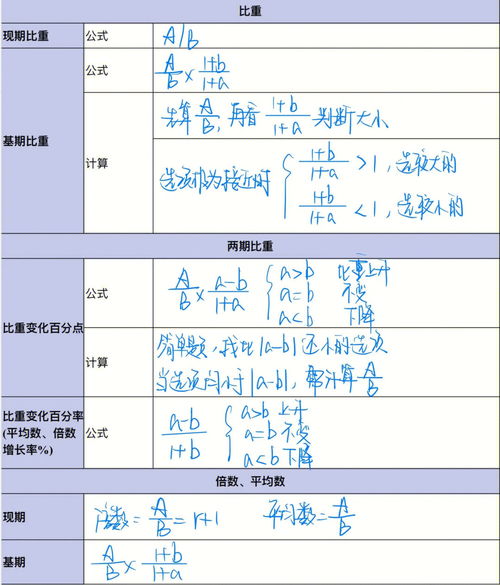 比重
现期比重 公式 A/B
基期比重 公式 A/B × (1+b)/(1+a)
计算 先算 A/B, 再看 (1+b)/(1+a) 判断大小
选项极为接近时 { (1+b)/(1+a) >1, 选较大的
(1+b)/(1+a) <1, 选较小的
两期比重
比重变化百分点 公式 A/B × (a-b)/(1+a) { a>b 比重上升
a=b 不变
a<b 下降
计算 简单题, 找比|a-b|还小的选项
当选项均小于|a-b|, 需计算 A/B
比重变化百分率
(平均数、倍数
增长率%) 公式 (a-b)/(1+b) { a>b 上升
a=b 不变
a<b 下降
倍数、平均数
现期 倍数= A/B = r+1 平均数= A/B
基期 A/B × (1+b)/(1+a)